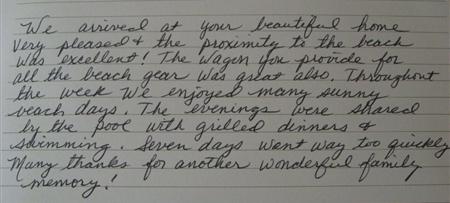 We arrived at your beautiful home
very pleased & the proximity to the beach
was excellent! The wagon you provide for
all the beach gear was great also. Throughout
the week we enjoyed many sunny
beach days. The evenings were shared
by the pool with grilled dinners &
swimming. Seven days went way too quickly
Many thanks for another wonderful family
memory!